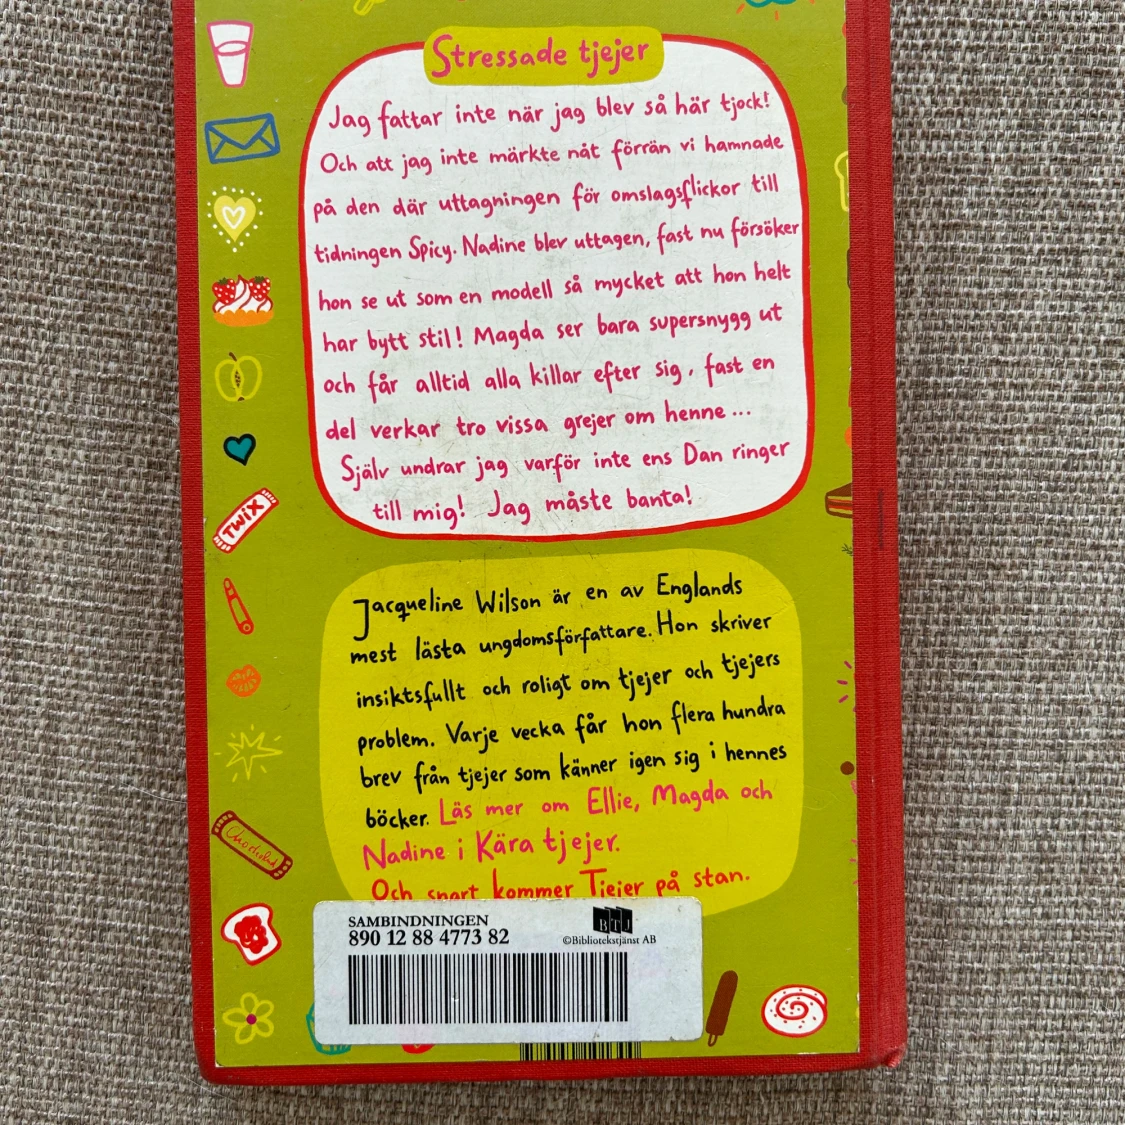 Stressade tjejer
Jag fattar inte när jag blev så här tjock!
Och att jag inte märkte nåt förrän vi hamnade
på den där uttagningen för omslagsflickor till
tidningen Spicy. Nadine blev uttagen, fast nu försöker
hon se ut som en modell så mycket att hon helt
har bytt stil! Magda ser bara supersnygg ut
och får alltid alla killar efter sig, fast en
del verkar tro vissa grejer om henne...
Själv undrar jag varför inte ens Dan ringer
till mig! Jag måste banta!
TWIX
Jacqueline Wilson är en av Englands
mest lästa ungdomsförfattare. Hon skriver
insiktsfullt och roligt om tjejer och tjejers
problem. Varje vecka får hon flera hundra
brev från tjejer som känner igen sig i hennes
böcker. Läs mer om Ellie, Magda och
Nadine i Kära tjejer.
Och snart kommer Tjejer på stan.
SAMBINDNINGEN
890 12 88 4773 82
BTJ
©Bibliotekstjänst AB